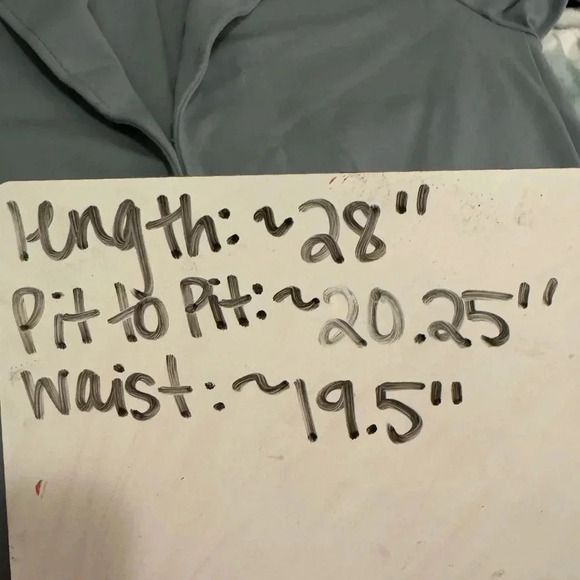 length: ~28"
Pit to Pit: ~20.25"
Waist: ~19.5"